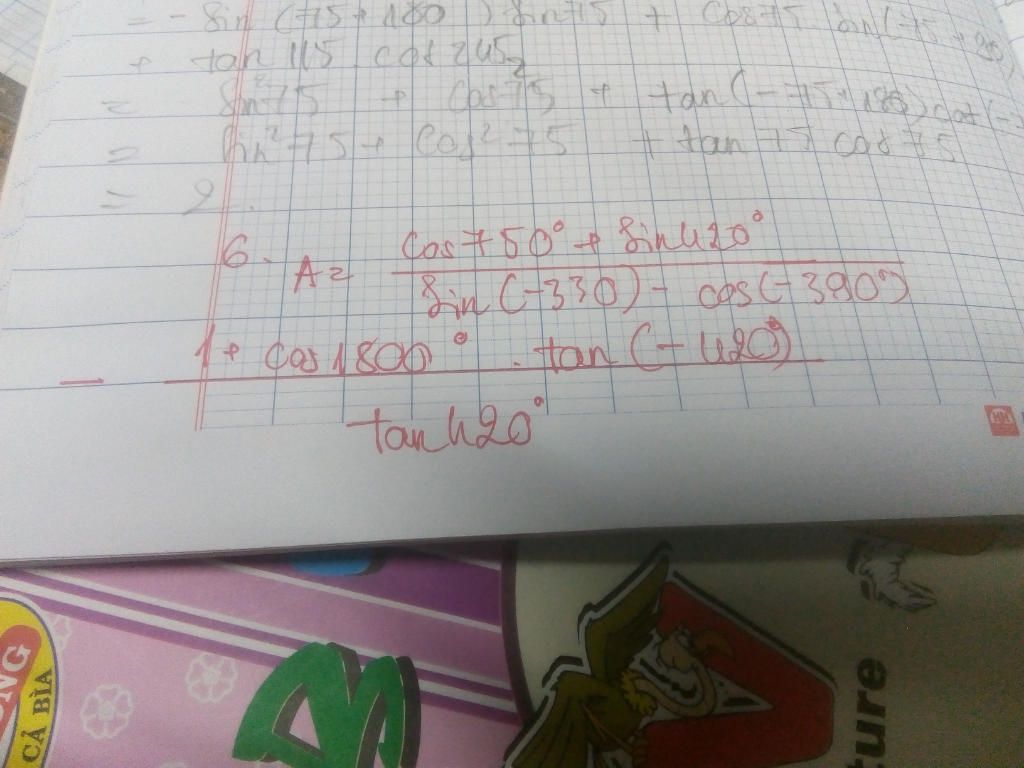 = - sin (75 + 180 ) sin 75 + cos 75 sin(-75 + 90)
+ tan 115 . cos 245
= sin²75 + cos²75 + tan(-75+180) cot(-
= sin²75 + cos²75 + tan 75 cos 75
= 2.
6. A = cos 750° + sin 420°
sin (-330) - cos(-390°)
- 1 + cos 1800° . tan (-420°)
tan 420°
HH
ONG
CẢ BÌA
B
ture